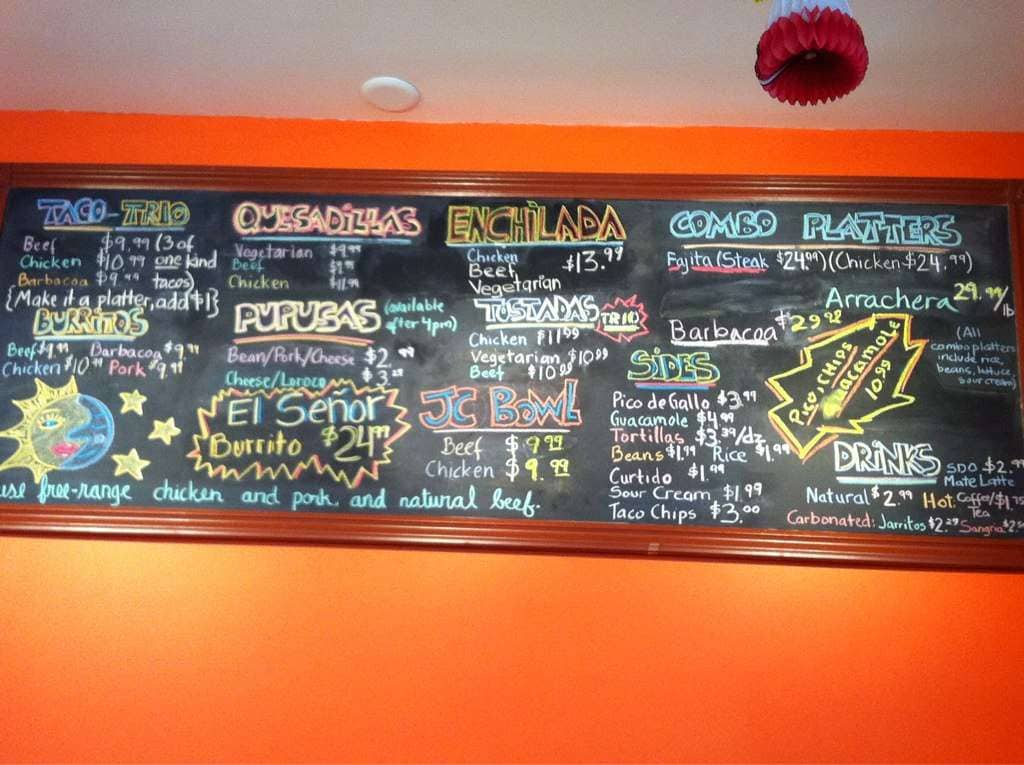 TACO-TRIO
Beef $9.99 (3 of
Chicken $10.99 one kind
Barbacoa $9.99 tacos)
{Make it a platter, add $1}
BURRITOS
Beef $9.99 Barbacoa $9.99
Chicken $10.99 Pork $9.99
QUESADILLAS
Vegetarian $9.99
Beef
Chicken $11.99
PUPUSAS (available
after 4pm)
Bean/Pork/Cheese $2.99
Cheese/Loroco $3.29
El Señor
Burrito $24.99
use free-range chicken and pork, and natural beef.
ENCHILADA
Chicken $13.99
Beef
Vegetarian
TOSTADAS TRIO
Chicken $11.99
Vegetarian $10.99
Beef $10.99
JC BOWL
Beef $9.99
Chicken $9.99
COMBO PLATTERS
Fajita (Steak $24.99) (Chicken $24.99)
Arrachera 29.99/lb
Barbacoa $29.92
(All
combo platters
include rice,
beans, lettuce,
sour cream)
SIDES
Pico de Gallo $3.99
Guacamole $4.99
Tortillas $3.39/dz
Beans $1.99 Rice $1.99
Curtido $1.99
Sour Cream $1.99
Taco Chips $3.00
Pico, CHIPS
Guacamole
10.99
DRINKS SDO $2.
Mate Latte
Natural $2.99 Hot: Coffee/ $1.75
Tea
Carbonated: Jarritos $2.29 Sangria $2.50